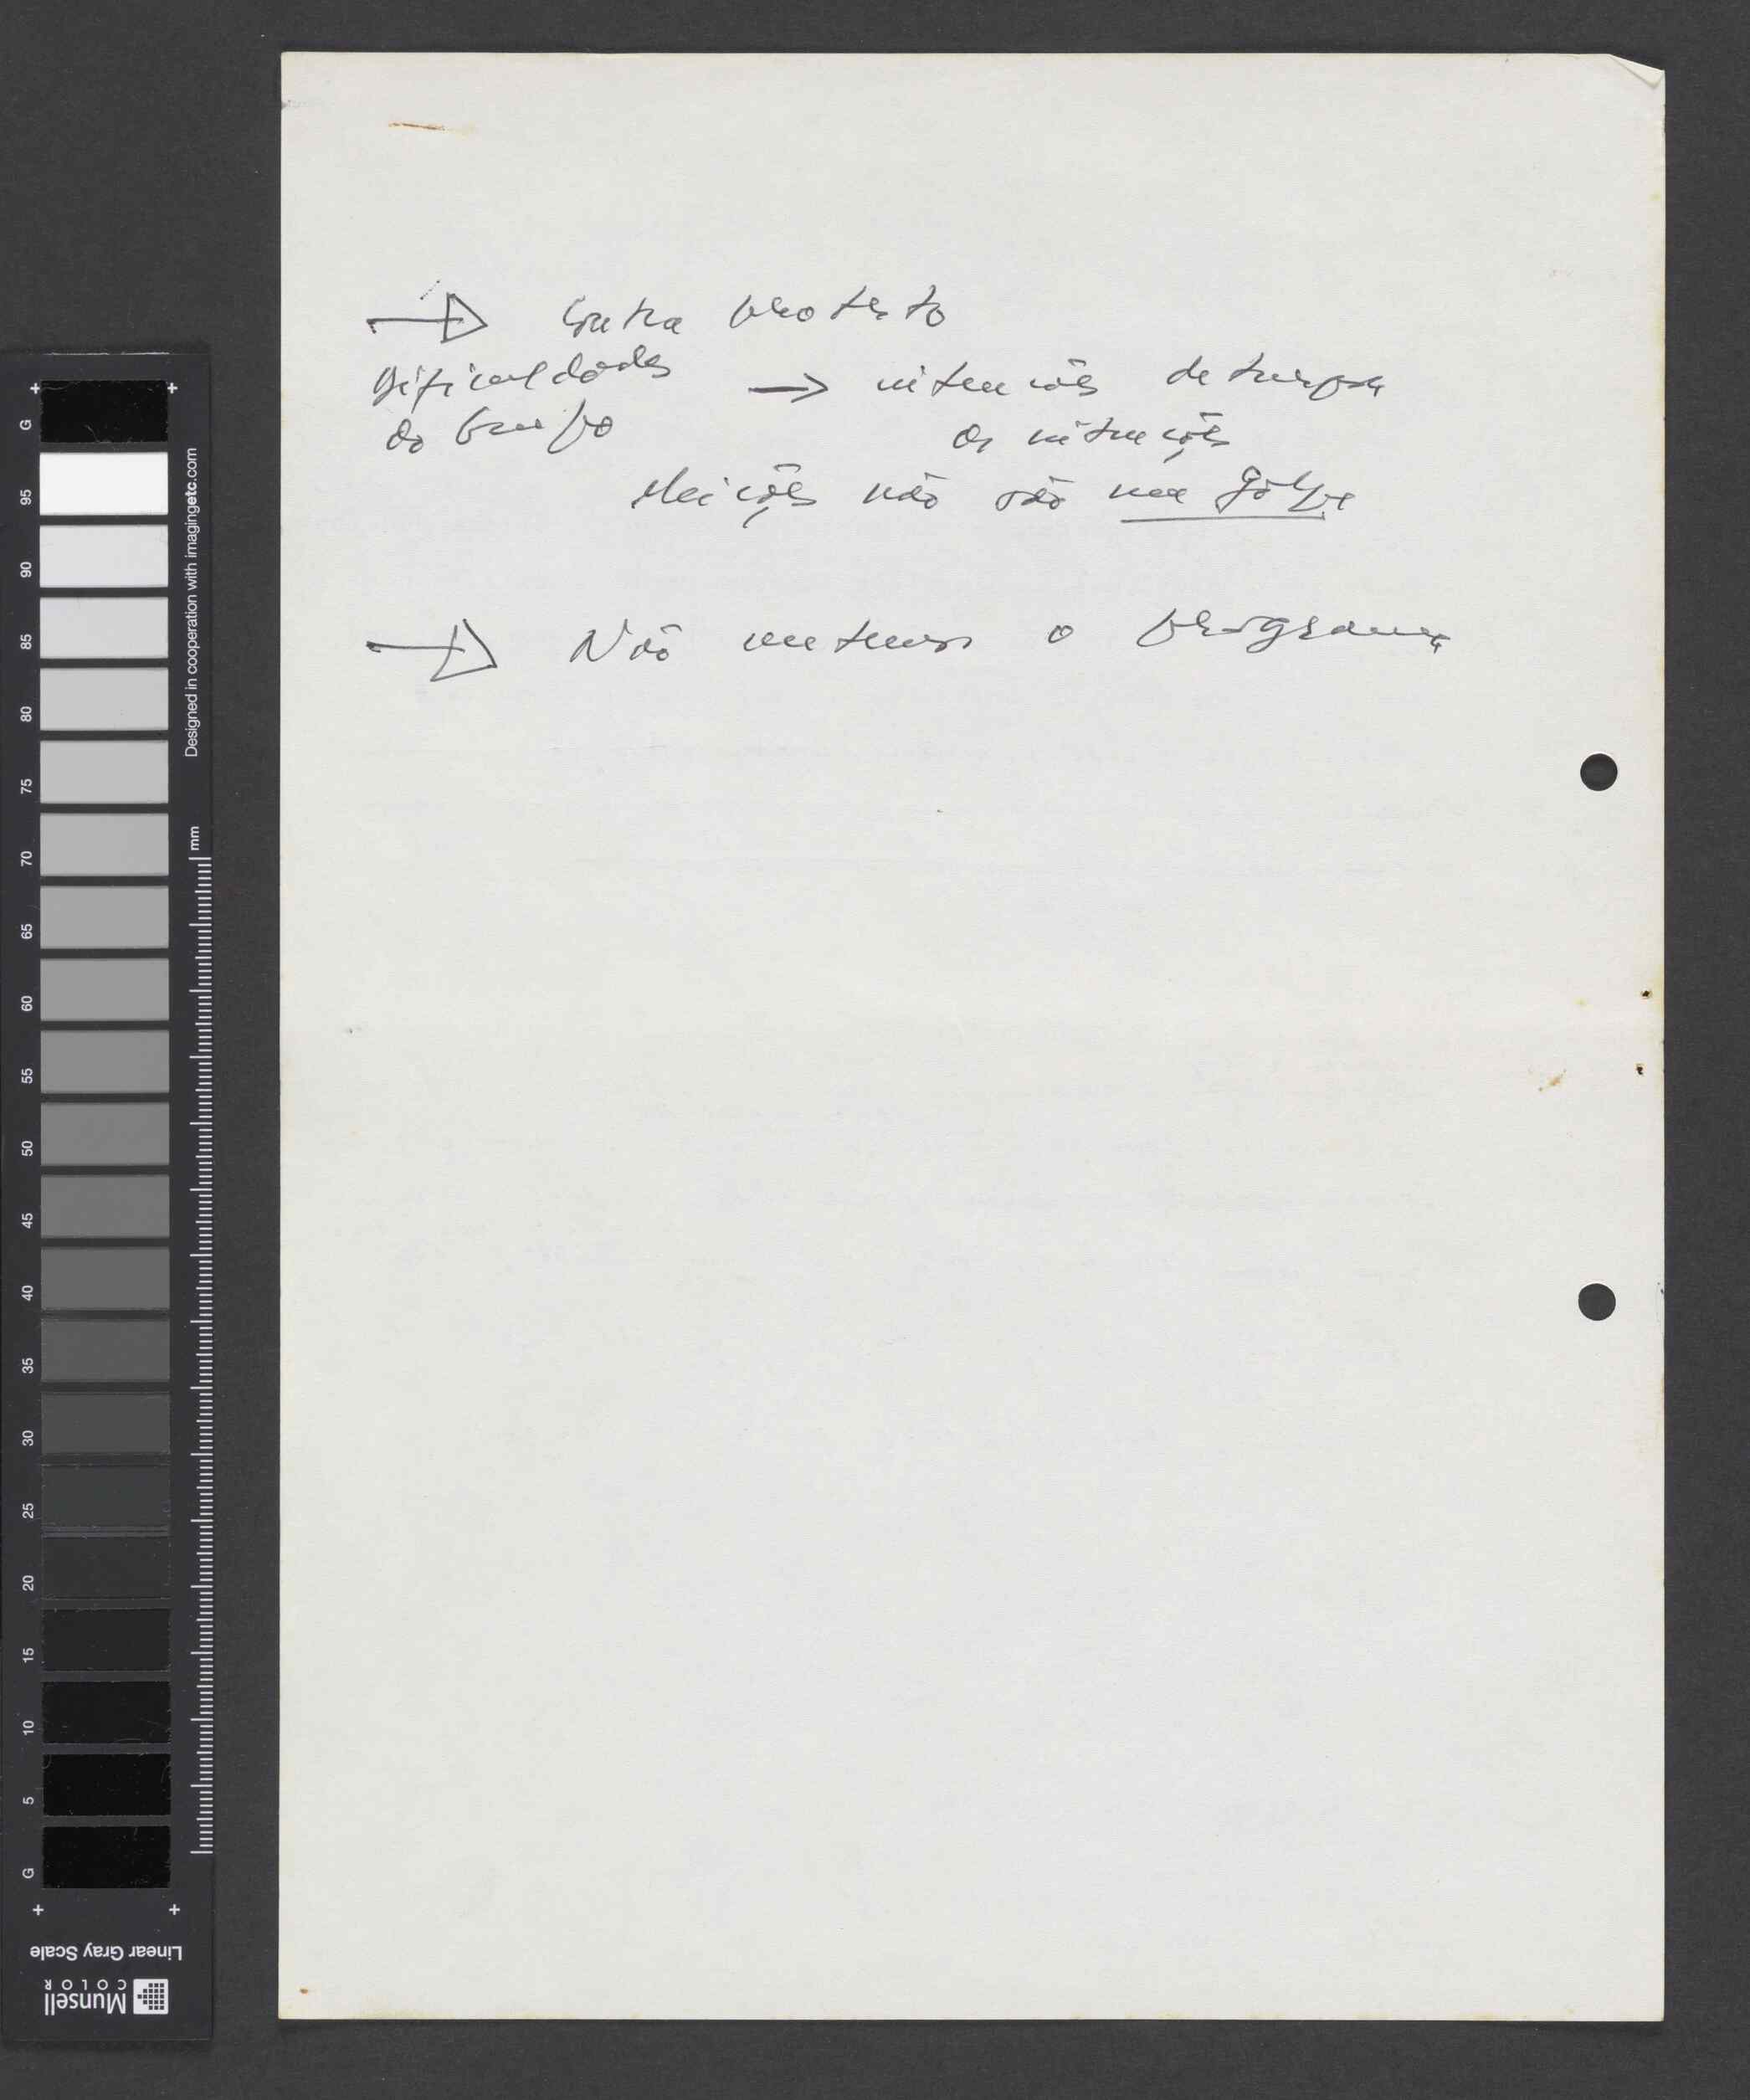 Contra protesto
Dificuldades → intenções deturpa
do Grupo as intenções
Eleições não são um golpe
Não metemos o programa
+ +
G
95
90
85
80
75
70
65
60
55
50
45
40
35
30
25
20
15
10
5
G
+ +
Designed in cooperation with imagingetc.com
mm
Linear Gray Scale
Munsell
COLOR